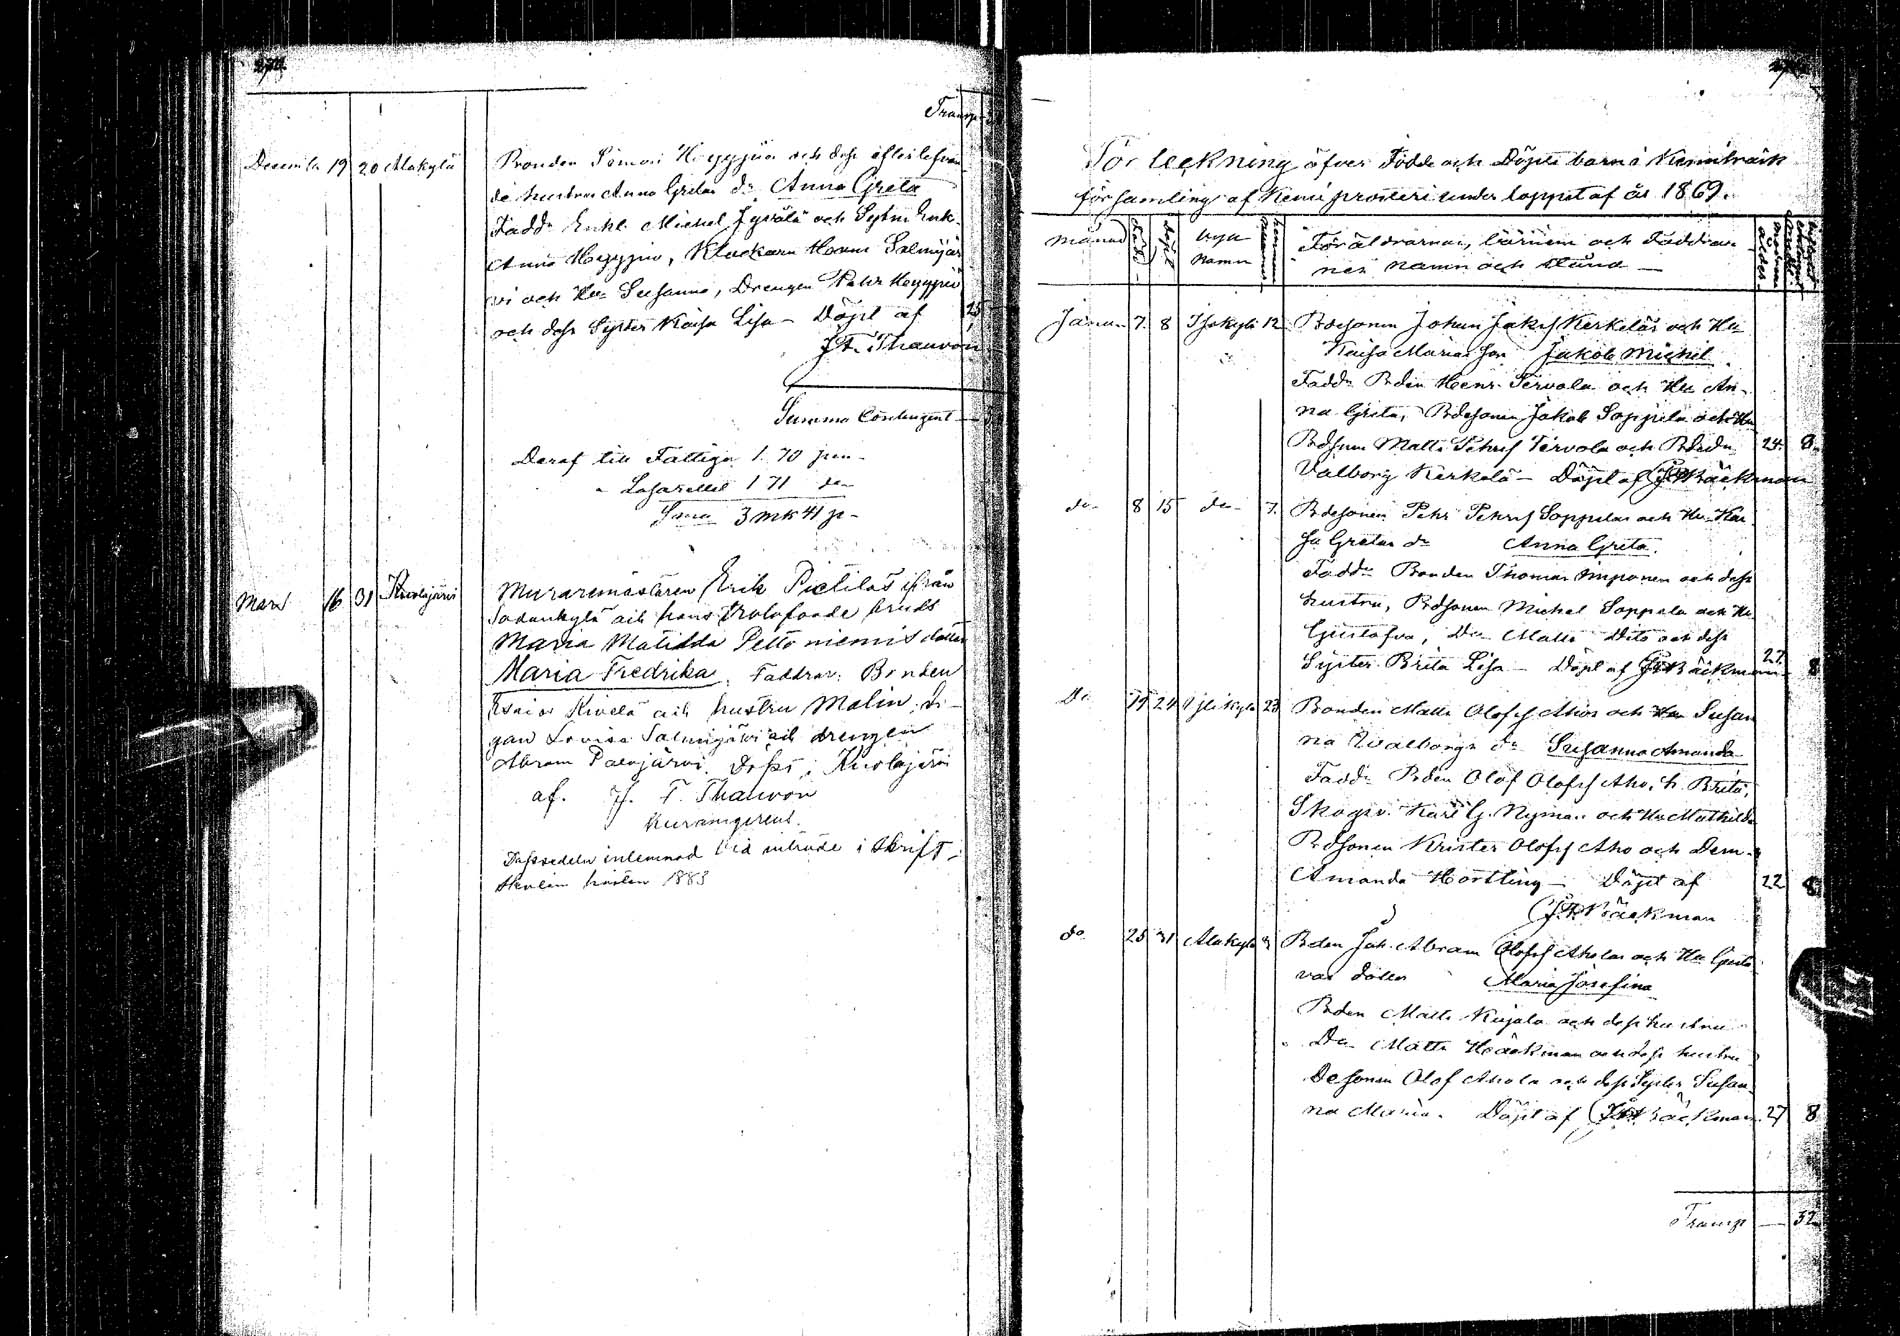 Transp
Decembr 19 20 Alakylä Bonden Simon Hyypiös och dess efterlefvan
de hustru Anna Gretas dr Anna Greta
Fadd: Enkl. Michel Jyrälä och Syst: Enk.
Anna Hyypiö, Klockarn Herm Salmijär
vi och Hu Susanna, Drengen Pehr Hyypiö
och dess Syster Kaisa Lisa — Döpt af 25
Thauvon
Summa Contingent
Deraf till Fattiga 1. 70 pen
" Lasarettet 1 71 do
Sma 3 mk 41 p
Mars 16 31 Kuolajärvi Muraremästaren Erik Pietiläs ifrån
Sodankylä och hans trolofvade bruds
Maria Matilda Pettoniemis dotter
Maria Fredrika. Faddrar: Bonden
Esaias Kivelä och hustru Malin,
gan Lovisa Salmijärvi och drengen
Abram Palojärvi. Döpt i Kuolajärvi
af. J. F. Thauvon
Dopssedeln inlemnad vid inträde i Skrift-
skolan hösten 1883
Förteckning öfver Födde och Döpte barn i Kemiträsk
församling af Kemi prosteri under loppet af år 1869.
månad född döpt bya namn Föräldrarnas, barnens och Faddrar
nes namn och stånd —
Januari 7. 8 Isokylä 12 Bdesonen Johan Jaks Kerkeläs och Hu
Kaisa Marias son Jakob Michel.
Fadd: Bden Henr. Tervola och Hu An-
na Greta, Bdesonen Jakob Soppela och Hu
Bdsonen Matts Pehrs Tervola och Bde dr 24. 8.
Valborg Kerkelä — Döpt af Bäckman
do 8 15 do 7. Bdesonen Pehr Pehrs Soppelas och Hu Kai
sa Gretas dr Anna Greta.
Fadd: Bonden Thomas Imponen och dess
hustru, Bdsonen Michel Soppela och Hu
Gustafva, Do Matts Dito och dess
Syster Brita Lisa — Döpt af Bäckman 27. 8
Do 19 24 23 Bonden Matts Olofs Ahos och Hu Susan
na Walborgs dr Susanna Amanda
Fadd: Bden Olof Olofs Aho, h. Brita,
Skogv. Karl G. Nyman och Hu Mathilda
Bdsonen Krister Olofs Aho och Dem.
Amanda Hortling — Döpt af 22 8
Bäckman
do 25 31 Alakylä Bden Joh. Abram Olofs Aholas och Hu Gusta
vas dotter Maria Josefina
Bden Matts Kujala och dess hustru
Do Matts Häckman och dess hustru
Desonen Olof Ahola och dess Syster Susan
na Maria. Döpt af Bäckman 27 8
Transp — 32